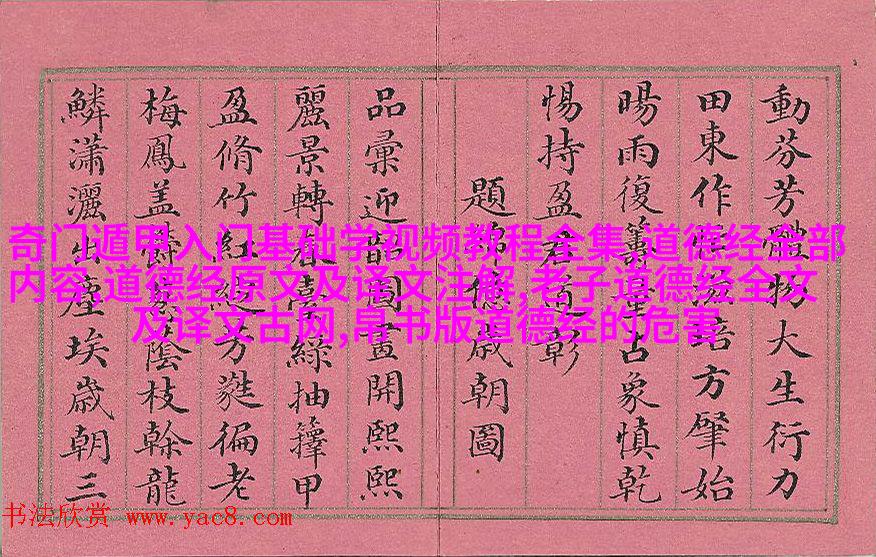 動芬芳體物大生衍力
田東作滋培方肇始
暘雨復籌量占象慎乾
惕持盈君彰
題綿億歲朝圖
品彙迎韶圖畫開熙熙
麗景轉春臺綠抽籜甲
盈脩竹紅綻芳蕤徧老
梅鳳盖蔭枝榦龍
鱗瀟灑出塵埃歲朝三
奇门遁甲入门基础学视频教程全集,道德经全部
内容,道德经原文及译文注解,老子道德经全文
及译文古网,帛书版道德经的危害
书法欣赏 www.yac8.com